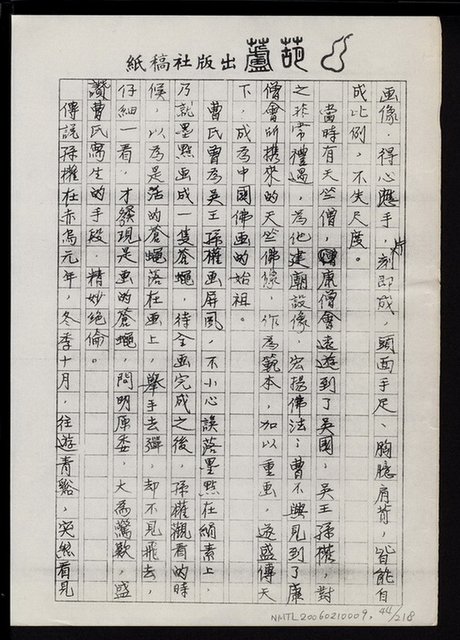 葫蘆出版社稿紙
画像，得心應手，片刻即成，頭面手足、胸臆肩背，皆能自
成比例，不失尺度。
當時有天竺僧，康僧會遠遊到了吳國，吳王孫權，對
之非常禮遇，為他建廟設像，宏揚佛法；曹不興見到了康
僧會所携來的天竺佛像，作為範本，加以重画，遂盛傳天
下，成為中國佛画的始祖。
曹氏曾為吳王孫權画屏風，不小心誤落墨點在絹素上，
乃就墨點画成一隻蒼蠅，待全画完成之後，孫權觀看的時
候，以為是活的蒼蠅落在画上，舉手去彈，却不見飛去，
仔細一看，才發現是画的蒼蠅，問明原委，大為驚歎，盛
讚曹氏寫生的手段，精妙絕倫。
傳說孫權在赤烏元年，冬季十月，往遊青谿，突然看見
NMTL20060210009, 44/218